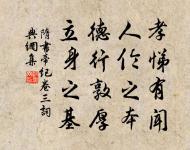 孝悌有聞
人倫之本
德行敦厚
立身之基
隋書帝紀卷三詞
典網集